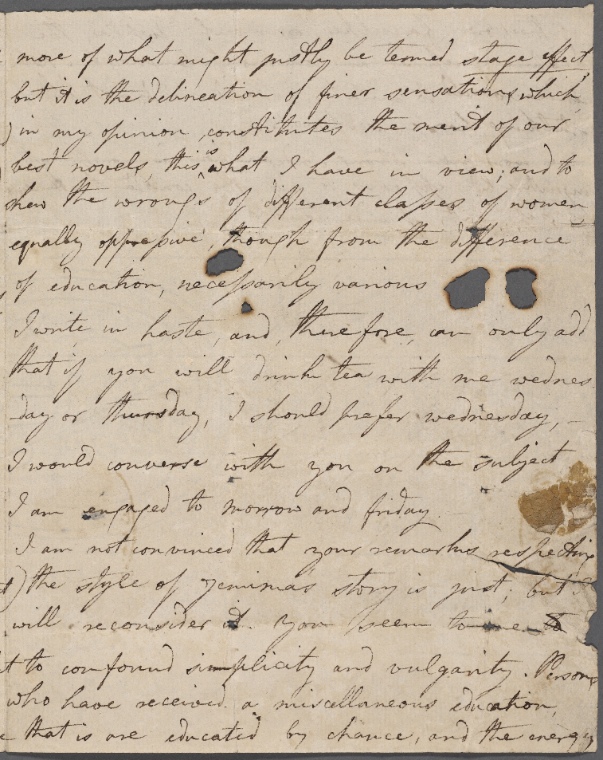 more of what might justly be termed stage effect
but it is the delineation of finer sensations which,
) in my opinion, constitutes the merit of our
best novels, this is what I have in view; and to
shew the wrongs of different classes of women
equally oppressive, though from the difference
of education, necessarily various
I write in haste, and, therefore, can only add
that if you will drink tea with me wednes
day or thursday, I should prefer wednesday, –
I would converse with you on the subject
I am engaged to morrow and friday.
I am not convinced that your remarks respecting
) the style of Jemimas story is just; but I
will reconsider it. You seem to me to
t to confound simplicity and vulgarity. Persons
who have received a miscellaneous education,
that is are educated by chance, and the energy